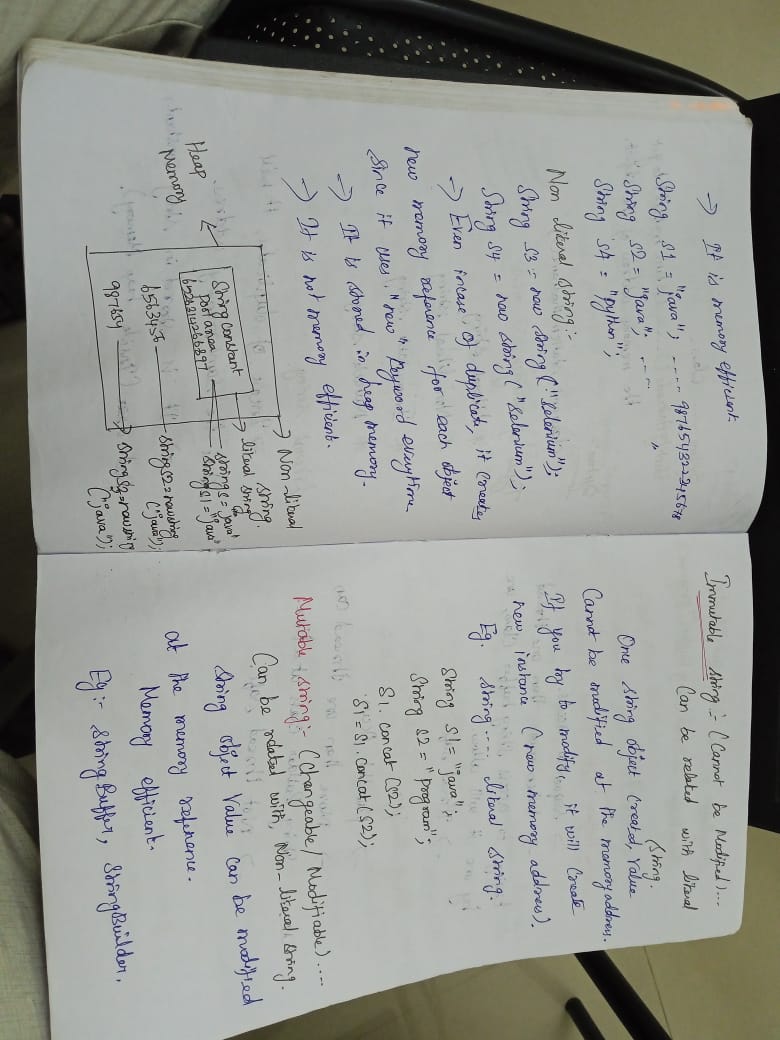 → It is memory efficient.
String s1 = "java"; ---- 9876543222345678
String s2 = "java"; ---- "
String s4 = "python";
Non literal string:-
String s3 = new string ("Selenium");
String s4 = new string ("Selenium");
→ Even incase of duplicate, it creates
new memory reference for each object
since it uses "new" keyword everytime
→ It is stored in heap memory.
→ It is not memory efficient.
→ Non-literal
string.
→ literal string
String constant
pool area
Heap
Memory
String s1 = "java"
6563456
String s2 = new string
("java");
987654
String s3 = new string
("java");
Immutable string :- (Cannot be Modified)...
Can be related with literal
string.
Once string object created, value
Cannot be modified at the memory address.
If you try to modify, it will create
new instance (new memory address).
Eg. String .... literal string.
String s1 = "java";
String s2 = "program";
S1. concat (s2);
S1 = S1. concat (s2);
Mutable string:- (Changeable / Modifiable)....
Can be related with, Non-literal string.
String object value can be modified
at the memory reference.
Memory efficient.
Eg:- StringBuffer, StringBuilder.